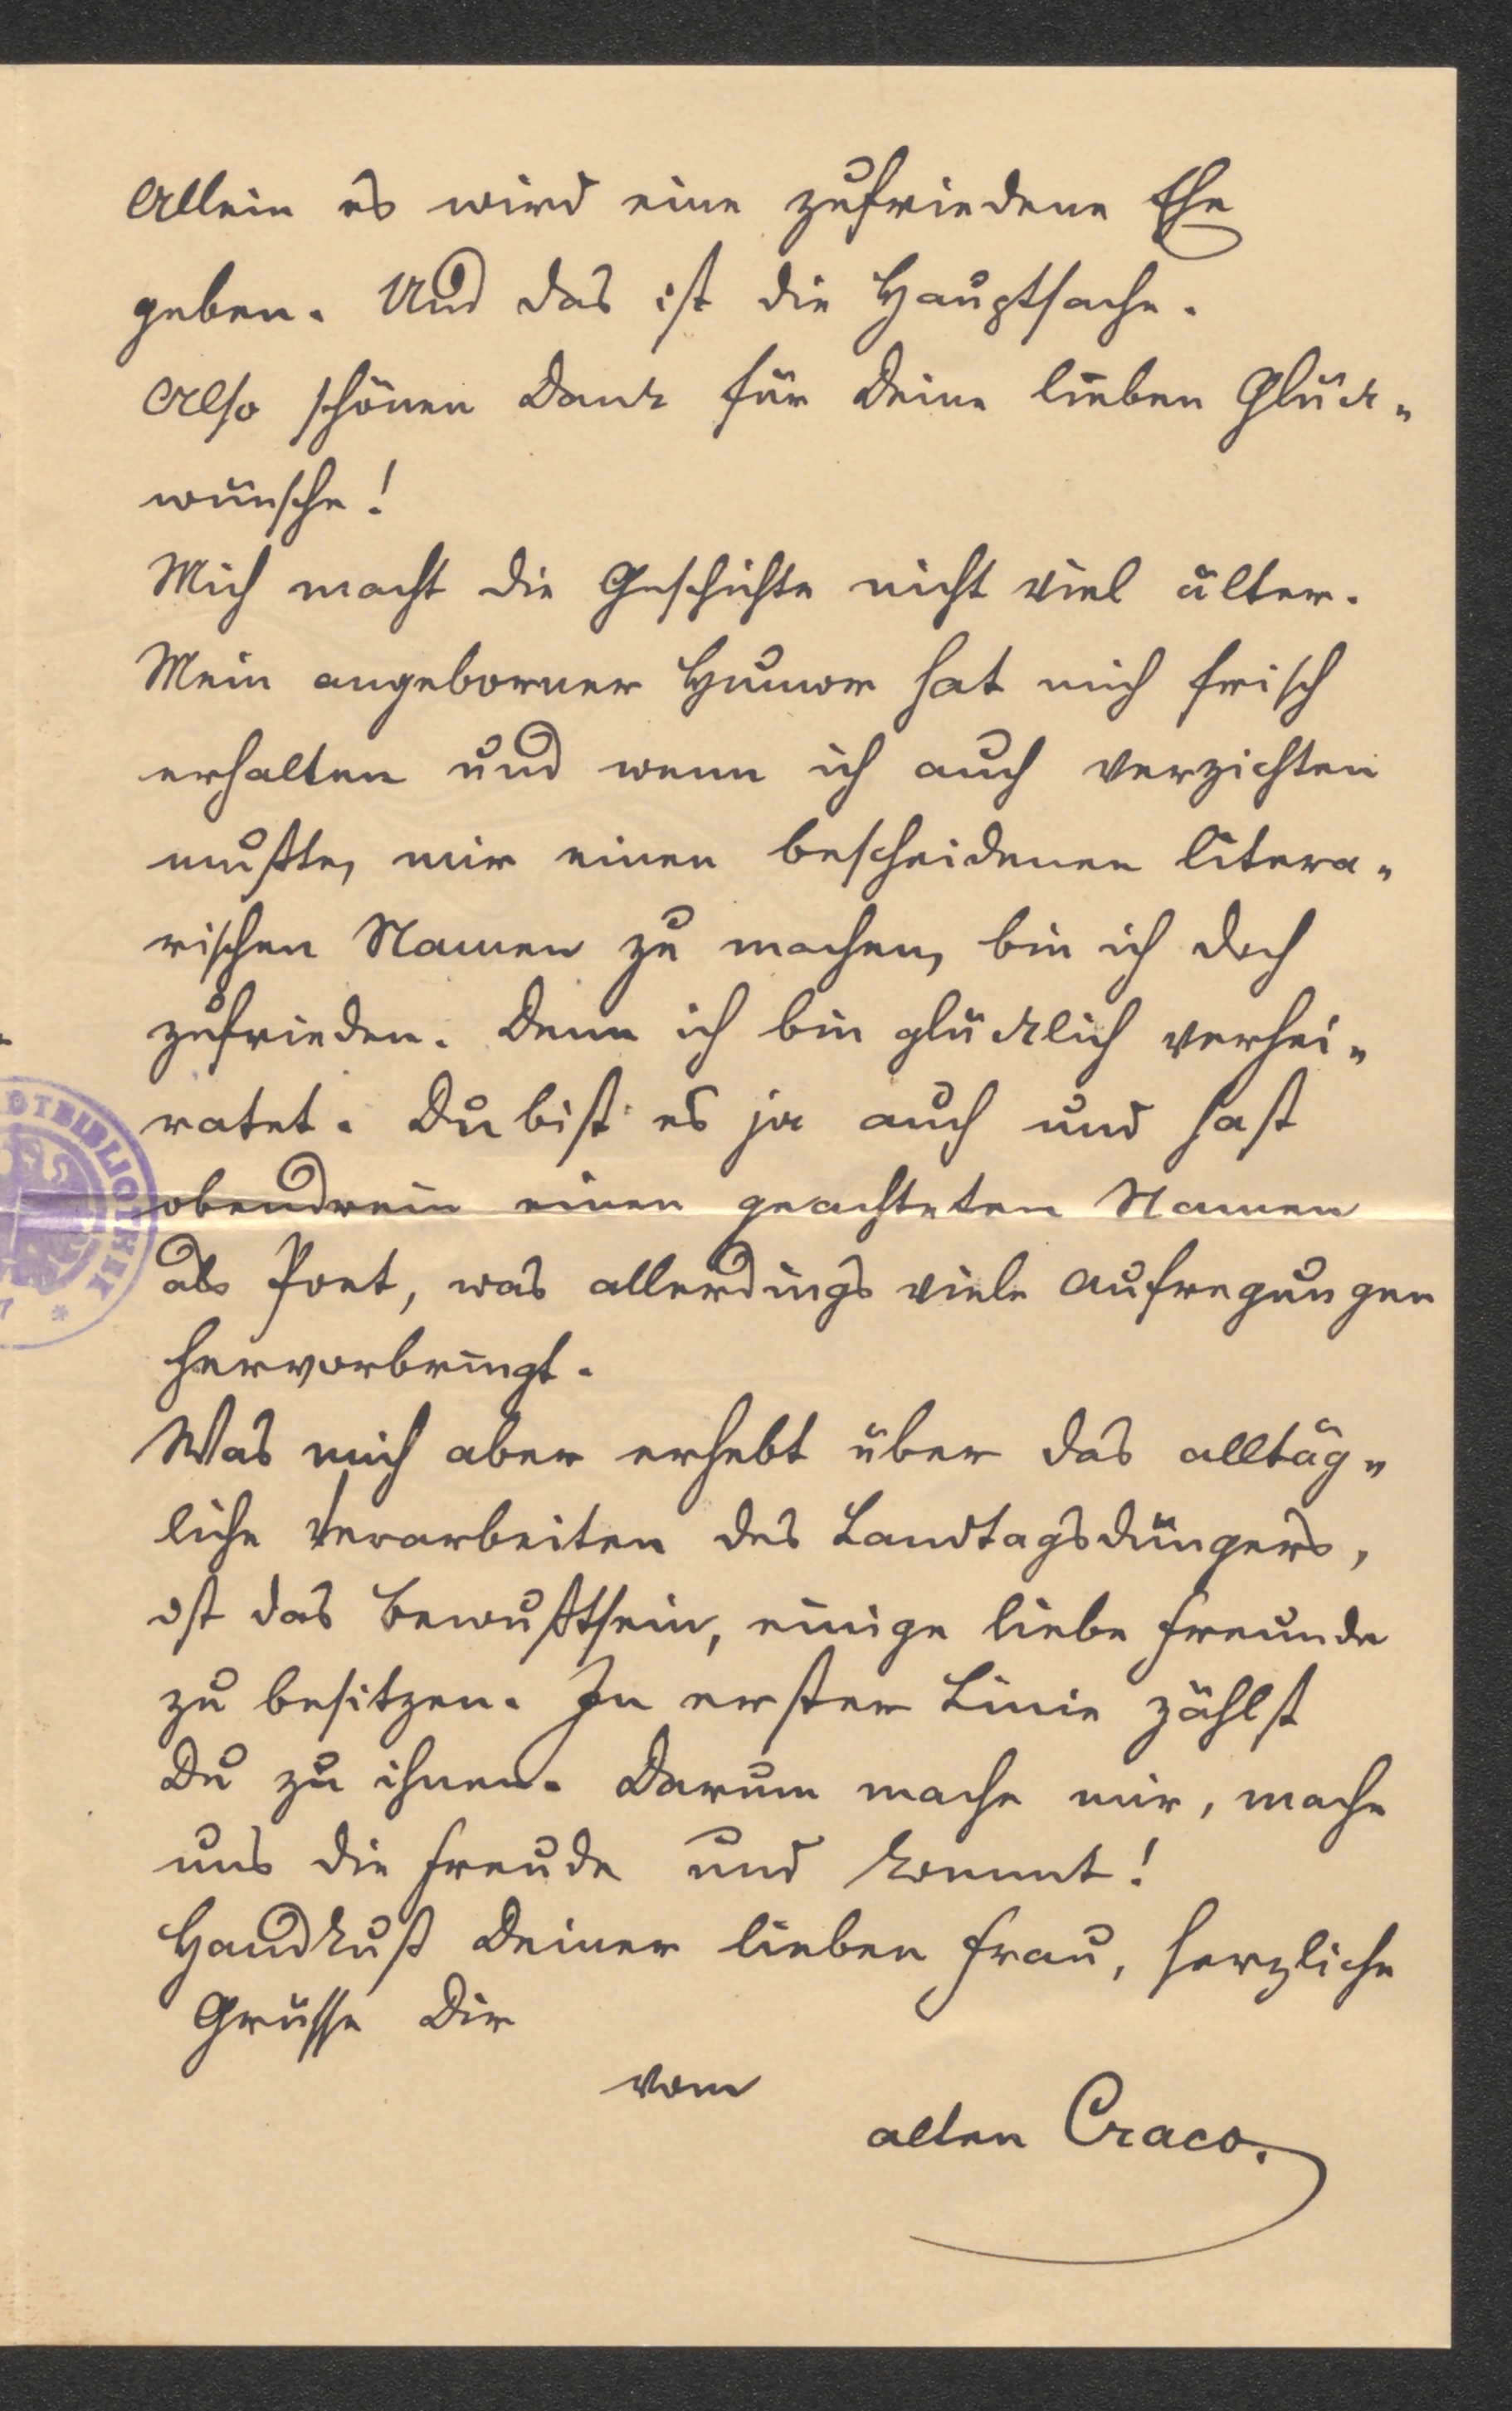 Allein es wird eine zufriedene Ehe
geben. Und das ist die Hauptsache.
Also schönen Dank für Deine lieben Glück-
wünsche!
Mich macht die Geschichte nicht viel älter.
Mein angeborner Humor hat mich frisch
erhalten und wenn ich auch verzichten
mußte, mir einen bescheidenen litera-
rischen Namen zu machen, bin ich doch
zufrieden. Denn ich bin glücklich verhei-
ratet. Du bist es ja auch und hast
obendrein einen geachteten Namen
als Poet, was allerdings viele Aufregungen
hervorbringt.
Was mich aber erhebt über das alltäg-
liche Verarbeiten des Landtagsdüngers,
ist das Bewußtsein, einige liebe Freunde
zu besitzen. In erster Linie zählst
Du zu ihnen. Darum mache mir, mache
uns die Freude und kommt!
Handkuß Deiner lieben Frau, herzliche
Grüsse Dir
vom
alten Craco.
DTBIBLIOTHEK